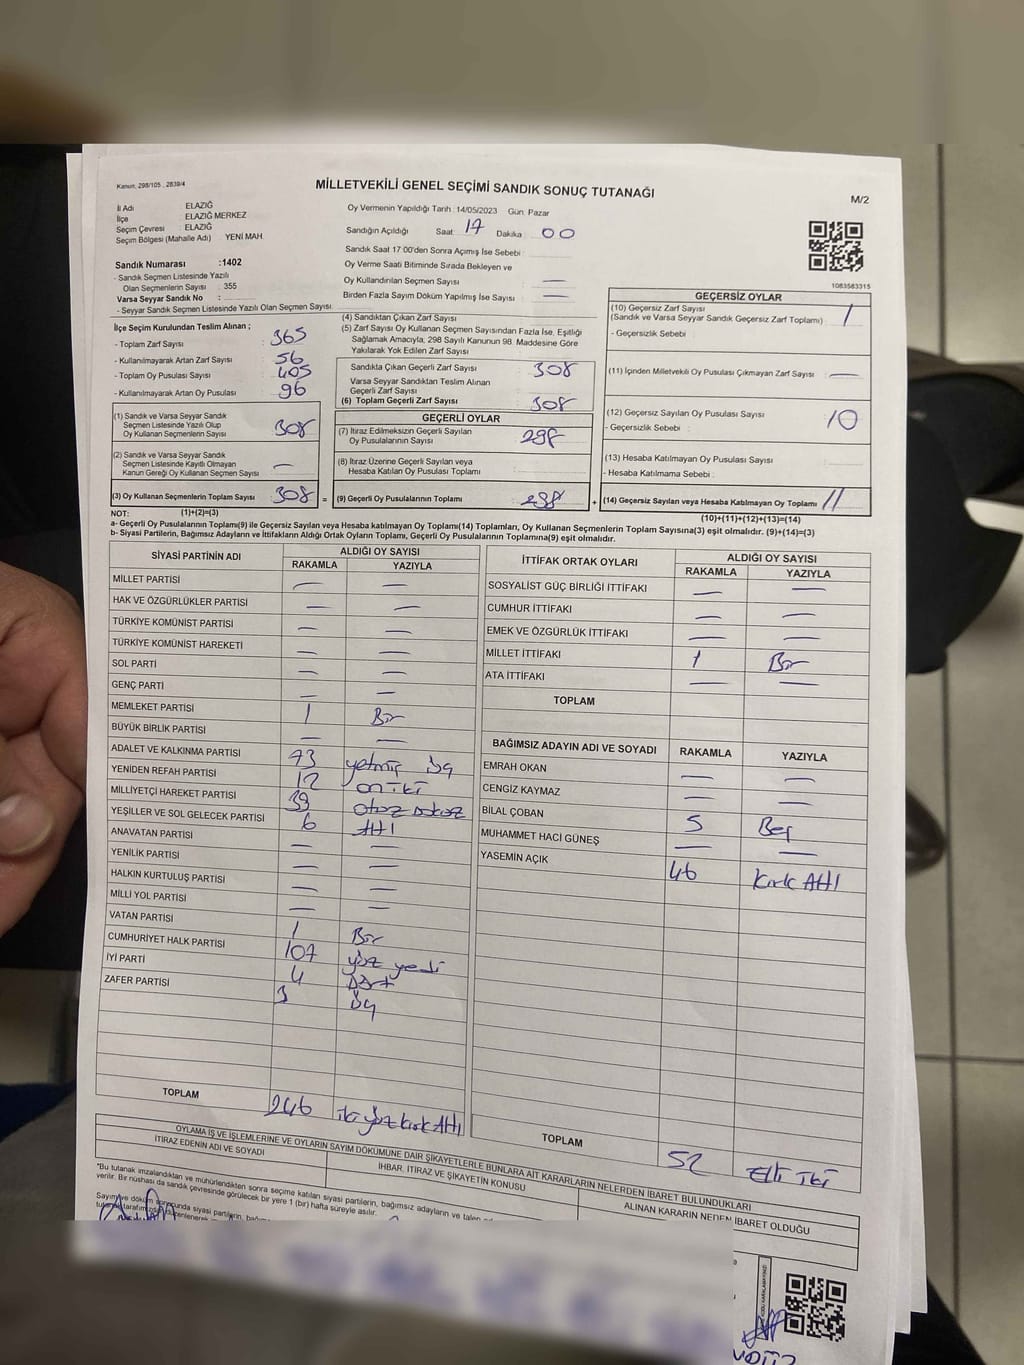 Kanun, 298/105 , 2839/4
MİLLETVEKİLİ GENEL SEÇİMİ SANDIK SONUÇ TUTANAĞI
M/2
İl Adı ELAZIĞ
İlçe ELAZIĞ MERKEZ
Seçim Çevresi ELAZIĞ
Seçim Bölgesi (Mahalle Adı) YENİ MAH.
Oy Vermenin Yapıldığı Tarih : 14/05/2023 Gün: Pazar
Sandığın Açıldığı Saat 17 Dakika 00
Sandık Saat 17:00'den Sonra Açımış İse Sebebi :
Oy Verme Saati Bitiminde Sırada Bekleyen ve
Oy Kullandırılan Seçmen Sayısı : —
Birden Fazla Sayım Döküm Yapılmış İse Sayısı : —
1083583315
Sandık Numarası :1402
- Sandık Seçmen Listesinde Yazılı
Olan Seçmenlerin Sayısı : 355
Varsa Seyyar Sandık No :
- Seyyar Sandık Seçmen Listesinde Yazılı Olan Seçmen Sayısı:
İlçe Seçim Kurulundan Teslim Alınan ;
- Toplam Zarf Sayısı : 365
- Kullanılmayarak Artan Zarf Sayısı : 56
- Toplam Oy Pusulası Sayısı : 405
- Kullanılmayarak Artan Oy Pusulası : 96
(1) Sandık ve Varsa Seyyar Sandık
Seçmen Listesinde Yazılı Olup
Oy Kullanan Seçmenlerin Sayısı : 308
(2) Sandık ve Varsa Seyyar Sandık
Seçmen Listesinde Kayıtlı Olmayan
Kanun Gereği Oy Kullanan Seçmen Sayısı : —
(3) Oy Kullanan Seçmenlerin Toplam Sayısı 308 =
(1)+(2)=(3)
(4) Sandıktan Çıkan Zarf Sayısı :
(5) Zarf Sayısı Oy Kullanan Seçmen Sayısından Fazla İse, Eşitliği
Sağlamak Amacıyla, 298 Sayılı Kanunun 98. Maddesine Göre
Yakılarak Yok Edilen Zarf Sayısı
Sandıkta Çıkan Geçerli Zarf Sayısı : 308
Varsa Seyyar Sandıktan Teslim Alınan
Geçerli Zarf Sayısı :
(6) Toplam Geçerli Zarf Sayısı : 308
GEÇERLİ OYLAR
(7) İtiraz Edilmeksizin Geçerli Sayılan
Oy Pusulalarının Sayısı : 298
(8) İtiraz Üzerine Geçerli Sayılan veya
Hesaba Katılan Oy Pusulası Toplamı :
(9) Geçerli Oy Pusulalarının Toplamı : 298 +
GEÇERSİZ OYLAR
(10) Geçersiz Zarf Sayısı 1
(Sandık ve Varsa Seyyar Sandık Geçersiz Zarf Toplamı)
- Geçersizlik Sebebi :
(11) İçinden Milletvekili Oy Pusulası Çıkmayan Zarf Sayısı : —
(12) Geçersiz Sayılan Oy Pusulası Sayısı 10
- Geçersizlik Sebebi :
(13) Hesaba Katılmayan Oy Pusulası Sayısı :
- Hesaba Katılmama Sebebi :
(14) Geçersiz Sayılan veya Hesaba Katılmayan Oy Toplamı 11
(10)+(11)+(12)+(13)=(14)
NOT:
a- Geçerli Oy Pusulalarının Toplamı(9) ile Geçersiz Sayılan veya Hesaba katılmayan Oy Toplamı(14) Toplamları, Oy Kullanan Seçmenlerin Toplam Sayısına(3) eşit olmalıdır. (9)+(14)=(3)
b- Siyasi Partilerin, Bağımsız Adayların ve İttifakların Aldığı Ortak Oyların Toplamı, Geçerli Oy Pusulalarının Toplamına(9) eşit olmalıdır.
SİYASİ PARTİNİN ADI ALDIĞI OY SAYISI
RAKAMLA YAZIYLA
MİLLET PARTİSİ — —
HAK VE ÖZGÜRLÜKLER PARTİSİ — —
TÜRKİYE KOMÜNİST PARTİSİ — —
TÜRKİYE KOMÜNİST HAREKETİ — —
SOL PARTİ — —
GENÇ PARTİ — —
MEMLEKET PARTİSİ 1 Bir
BÜYÜK BİRLİK PARTİSİ — —
ADALET VE KALKINMA PARTİSİ 73 yetmiş üç
YENİDEN REFAH PARTİSİ 12 on iki
MİLLİYETÇİ HAREKET PARTİSİ 39 otuz dokuz
YEŞİLLER VE SOL GELECEK PARTİSİ 6 Altı
ANAVATAN PARTİSİ — —
YENİLİK PARTİSİ — —
HALKIN KURTULUŞ PARTİSİ — —
MİLLİ YOL PARTİSİ — —
VATAN PARTİSİ 1 Bir
CUMHURİYET HALK PARTİSİ 107 yüz yedi
İYİ PARTİ 4 Dört
ZAFER PARTİSİ 3 üç
TOPLAM 246 iki yüz kırk Altı
İTTİFAK ORTAK OYLARI ALDIĞI OY SAYISI
RAKAMLA YAZIYLA
SOSYALİST GÜÇ BİRLİĞİ İTTİFAKI — —
CUMHUR İTTİFAKI — —
EMEK VE ÖZGÜRLÜK İTTİFAKI — —
MİLLET İTTİFAKI 1 Bir
ATA İTTİFAKI — —
TOPLAM
BAĞIMSIZ ADAYIN ADI VE SOYADI RAKAMLA YAZIYLA
EMRAH OKAN — —
CENGİZ KAYMAZ — —
BİLAL ÇOBAN 5 Beş
MUHAMMET HACİ GÜNEŞ — —
YASEMİN AÇIK 46 Kırk Altı
TOPLAM 52 Elli iki
OYLAMA İŞ VE İŞLEMLERİNE VE OYLARIN SAYIM DÖKÜMÜNE DAİR ŞİKAYETLERLE BUNLARA AİT KARARLARIN NELERDEN İBARET BULUNDUKLARI
İTİRAZ EDENİN ADI VE SOYADI
İHBAR, İTİRAZ VE ŞİKAYETİN KONUSU
ALINAN KARARIN NEDEN İBARET OLDUĞU
*Bu tutanak imzalandıktan ve mühürlendikten sonra seçime katılan siyasi partilerin, bağımsız adayların ve talen
verilir. Bir nüshası da sandık çevresinde görülecek bir yere 1 (bir) hafta süreyle asılır.
Sayım ve döküm sonucunda siyasi partilerin,